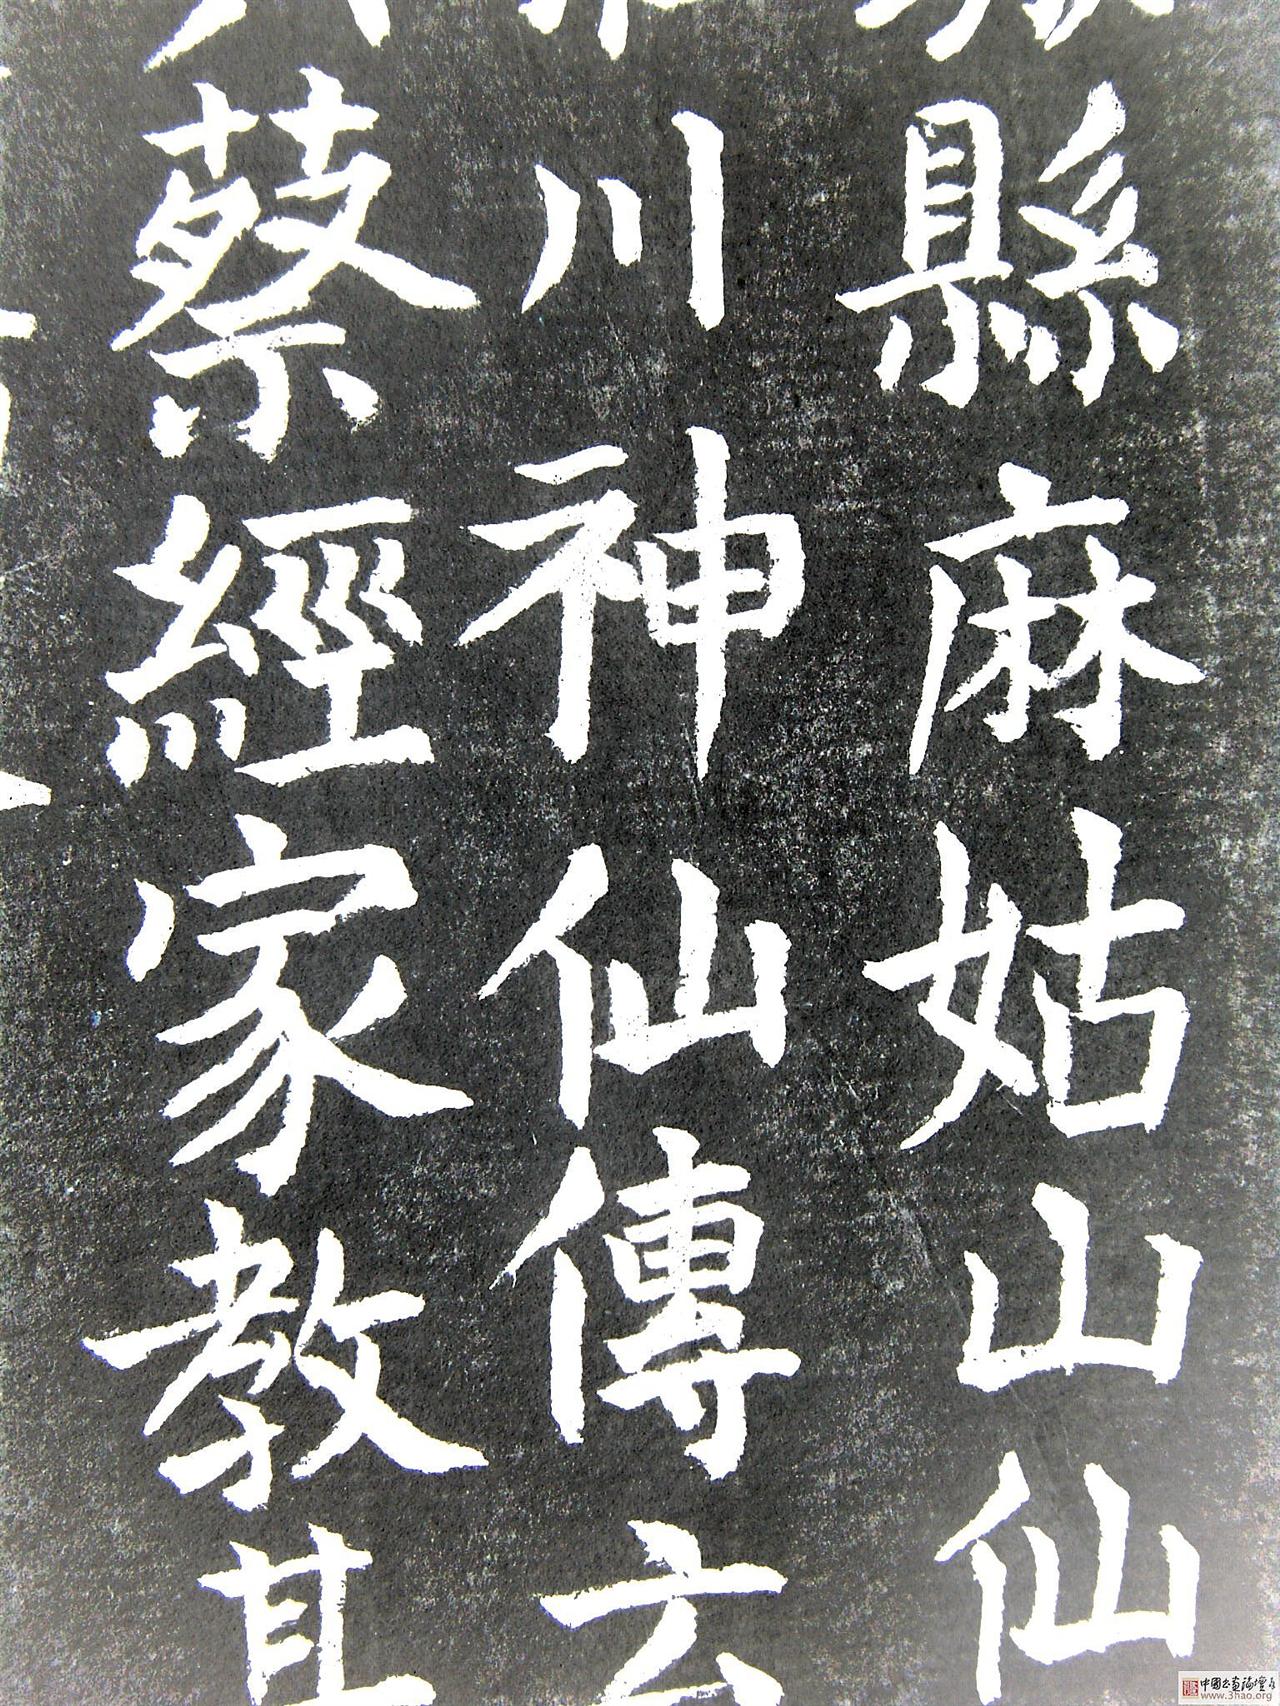 縣麻姑山仙
川神仙傳云
蔡經家教其
中國书画论坛
www.3hao.org